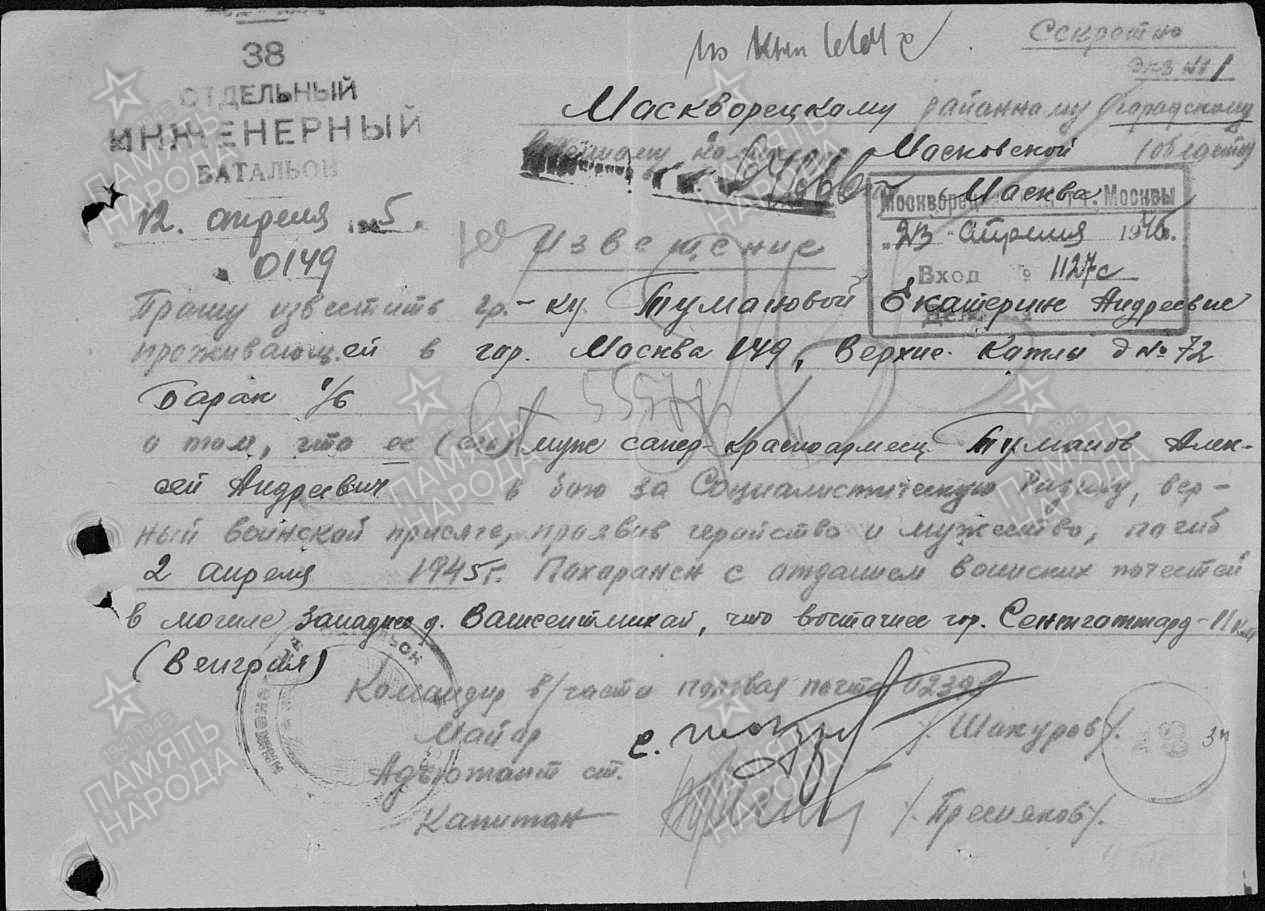 Секретно
Экз №1
38
ОТДЕЛЬНЫЙ
ИНЖЕНЕРНЫЙ
БАТАЛЬОН
12. апреля 5 г.
0149
Маскворецкому районному (городскому
Масковской (области)
Москва
Москвы
"23" апреля 194 г.
Вход № 1127с
Извещение
Прашу известить гр.-ку Тумановой Екатерине Андреевне
проживающей в гор. Москва 149, Верхние Катлы д № 72
Барак 1/6
о том, что ее (его) муж сапер-красноармеец Туманов Алек-
сей Андреевич в бою за Социалистическую Родину, вер-
ный воинской присяге, праявив геройство и мужество, погиб
2 апреля 1945 г. Похаранен с атданием воинских почестей
в могиле западнее д. Вашсентмихай, что восточнее гор. Сентготтард - 11 км
(Венгрия)
Командир в/части полевая почта
Майор /. Шакуров /.
Адъютант ст.
Капитан /. Пресняков /.
ПАМЯТЬ
НАРОДА